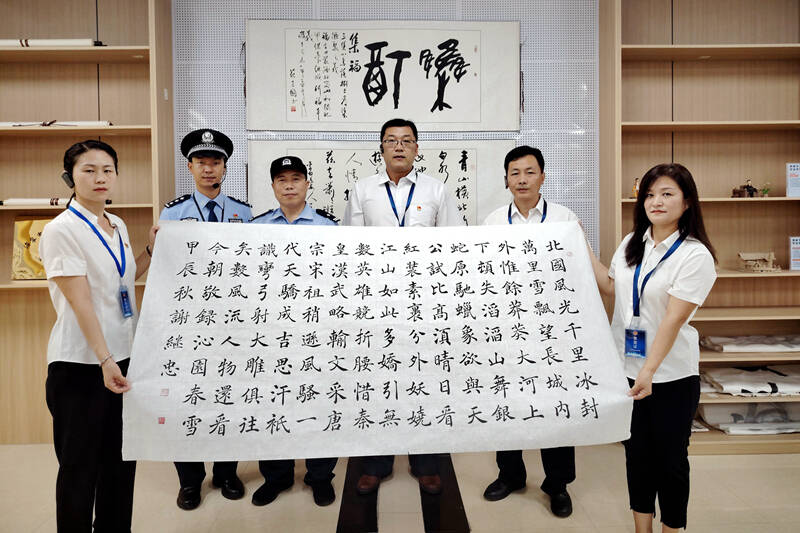 集福
青山橫北
北國風光千里冰封
萬里雪飄望長城內
外惟餘莽莽大河上
下頓失滔滔山舞銀
蛇原馳蠟象欲與天
公試比高須晴日看
紅裝素裹分外妖嬈
江山如此多嬌引無
數英雄競折腰惜秦
皇漢武略輸文采唐
宗宋祖稍遜風騷一
代天驕成吉思汗祇
識彎弓射大雕俱往
矣數風流人物還看
今朝敬録沁園春雪
甲辰秋謝繼忠